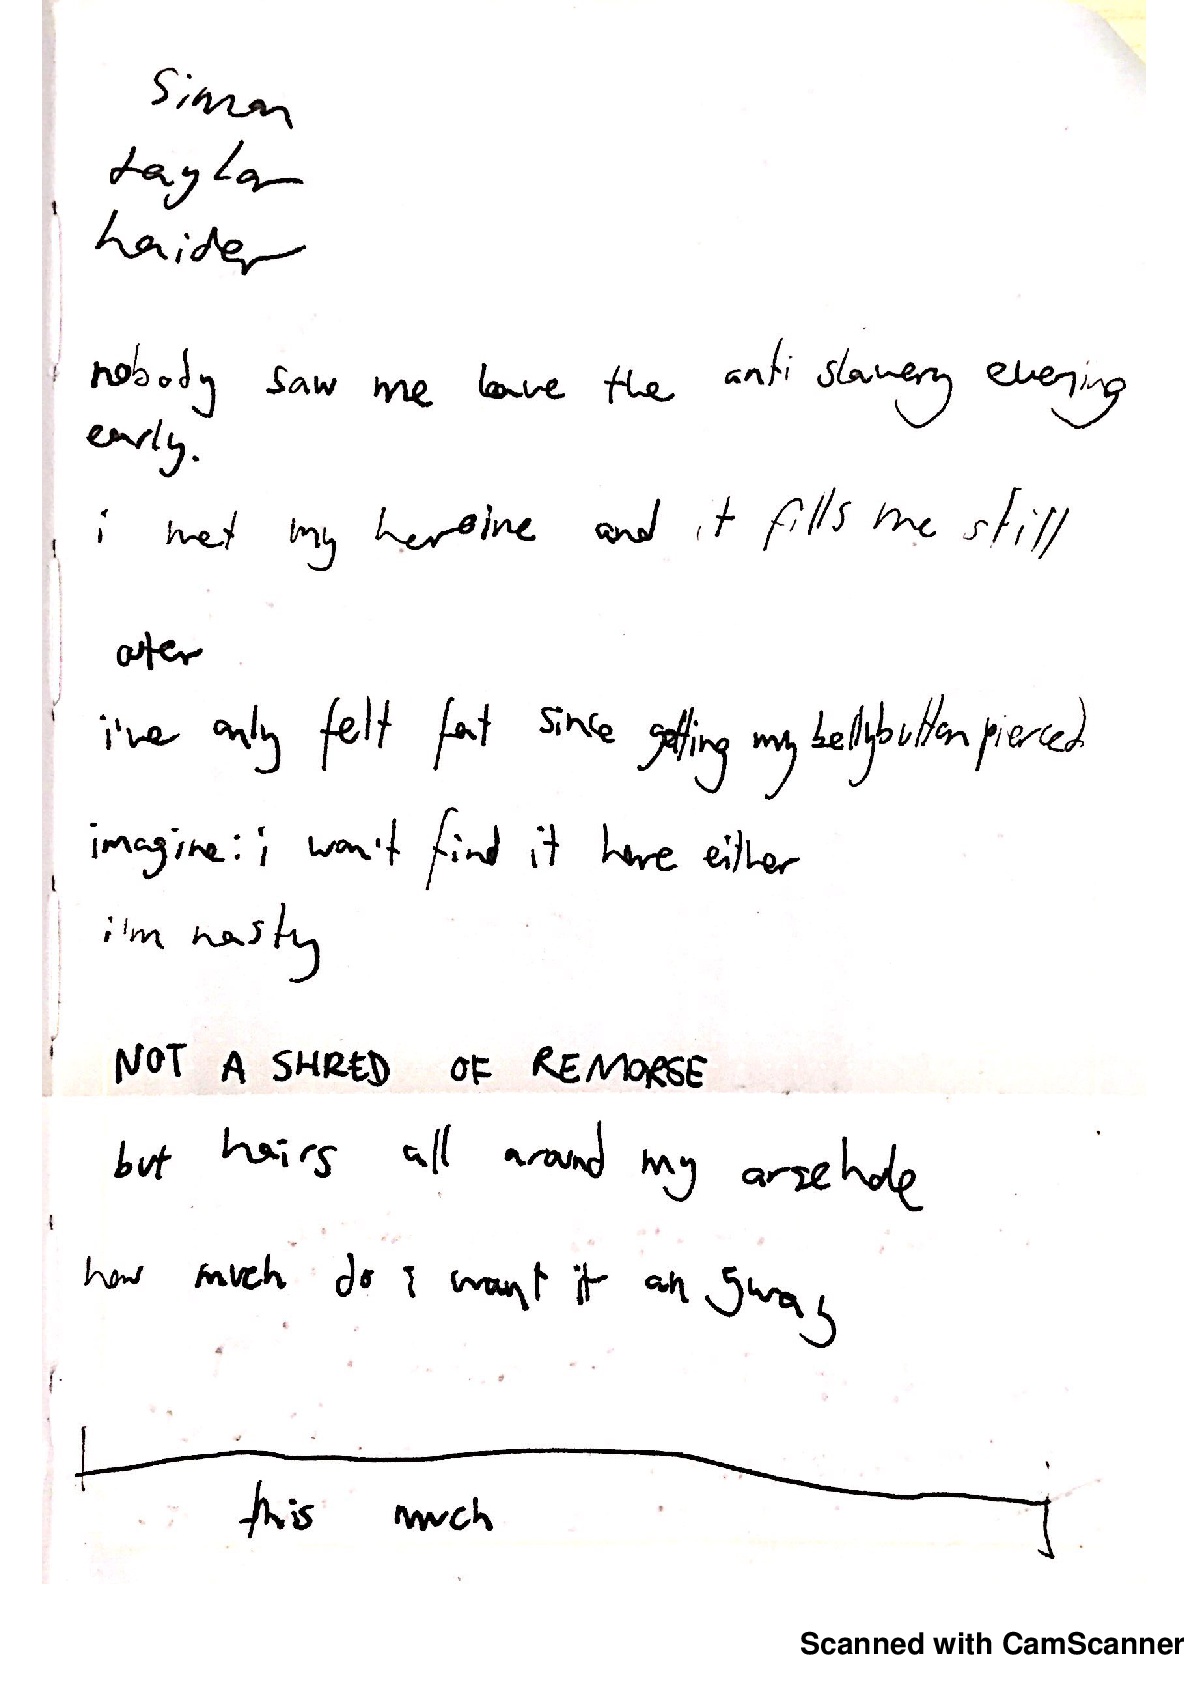 Simon
taylor
haider
nobody saw me leave the anti slavery evening
early.
i met my heroine and it fills me still
after
i've only felt fat since getting my bellybutton pierced
imagine: i won't find it here either
i'm nasty
NOT A SHRED OF REMORSE
but hairs all around my arsehole
how much do i want it an
this much
Scanned with CamScanner